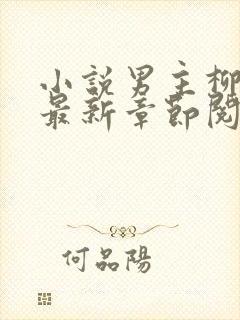 小説男主柳
最新章節閱
何品陽